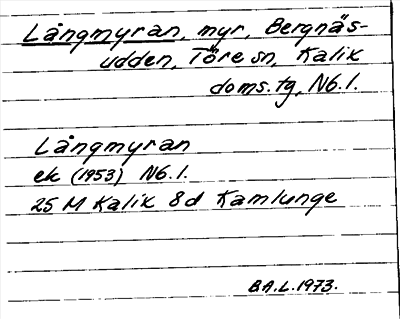 Långmyran, myr, Bergnäs-
udden, Töre sn, Kalix
doms.tg, Nb.l.
Långmyran
ek (1953) Nb.l.
25 M Kalix 8d Kamlunge
B.A.L. 1973.